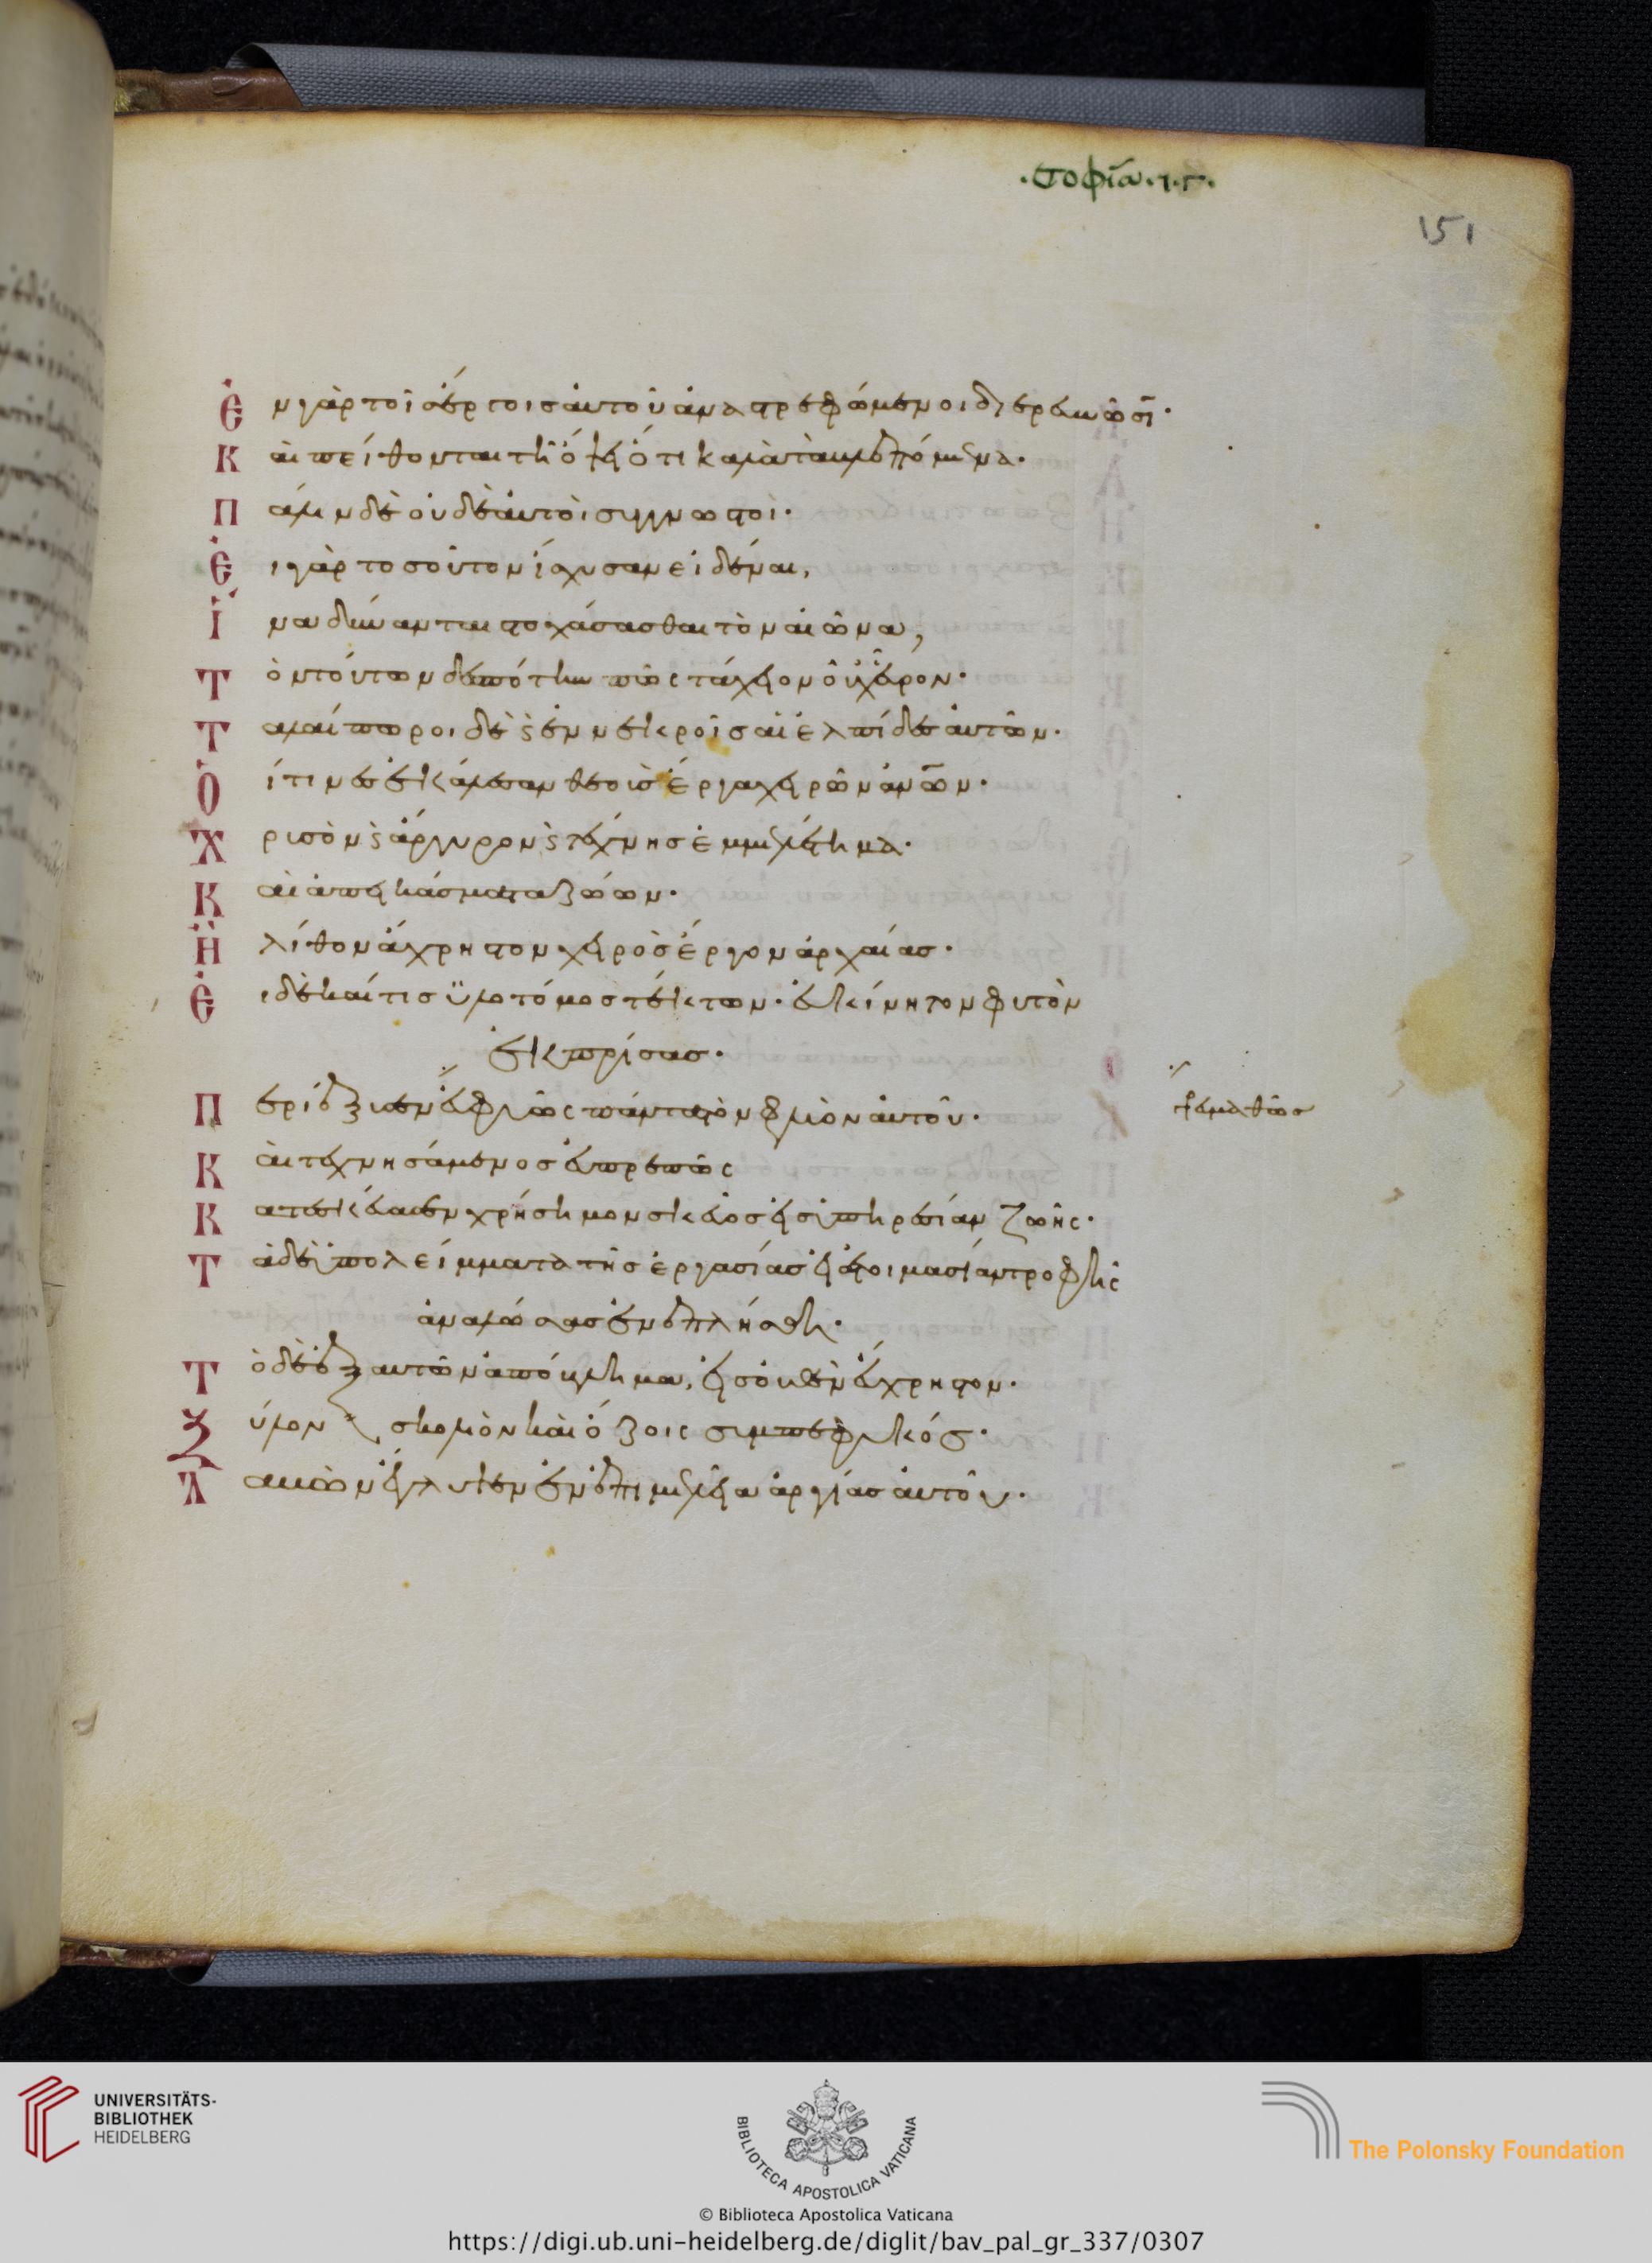 ·σοφία·ι·γ·
151
Ἐν γὰρ τοῖς ἔργοις αὐτοῦ ἀναστρεφόμενοι διερευνῶσι·
Καὶ πείθονται τῆ ὄψει ὅτι καλὰ τὰ βλεπόμενα·
Πάλιν δὲ οὐδὲ αὐτοὶ συγγνωστοί·
Ἐι γὰρ τοσοῦτον ἴσχυσαν εἰδέναι,
Ἵνα δύνωνται στοχάσασθαι τὸν αἰῶνα,
Τὸν τούτων δεσπότην πῶς τάχειον οὐχ εὗρον·
Ταλαίπωροι δὲ ϛ ἐν νεκροῖς αἱ ἐλπίδες αὐτῶν·
Ὁίτινες ἐκάλεσαν θεοὺς ἔργα χειρῶν ἀνῶν·
Χρυσὸν ϛ ἄργυρον ϛ τέχνης ἐμμελέτημα·
Καὶ ἀπεικάσματα ζώων·
Ἢ λίθον ἄχρηστον χειρὸς ἔργον ἀρχαίας·
Ἐι δὲ καί τις ὑλοτόμος τέκτων· εὐκίνητον φυτὸν
ἐκπρίσας·
Περιέξυσεν εὐφυῶς πάντα τὸν φλοιὸν αὐτοῦ·
εὐμαθῶς
Καὶ τεχνησάμενος εὐπρεπῶς
Κατεσκεύασεν χρήσιμον σκεῦος εἰς ὑπηρεσίαν ζωῆς·
Τὰ δὲ ὑπολείμματα τῆς ἐργασίας εἰς ἑτοιμασίαν τροφῆς
ἀναλώσας ἐνεπλήσθη·
Τὸ δὲ ἐξ αὐτῶν ἀπόβλημα, εἰς οὐθὲν εὔχρηστον·
Ξύλον σκολιὸν καὶ ὄζοις συμπεφυκός·
Λαβὼν ἔγλυψεν ἐν ἐπιμελείᾳ ἀργίας αὐτοῦ·
UNIVERSITÄTS-
BIBLIOTHEK
HEIDELBERG
BIBLIOTECA APOSTOLICA VATICANA
The Polonsky Foundation
© Biblioteca Apostolica Vaticana
https://digi.ub.uni-heidelberg.de/diglit/bav_pal_gr_337/0307